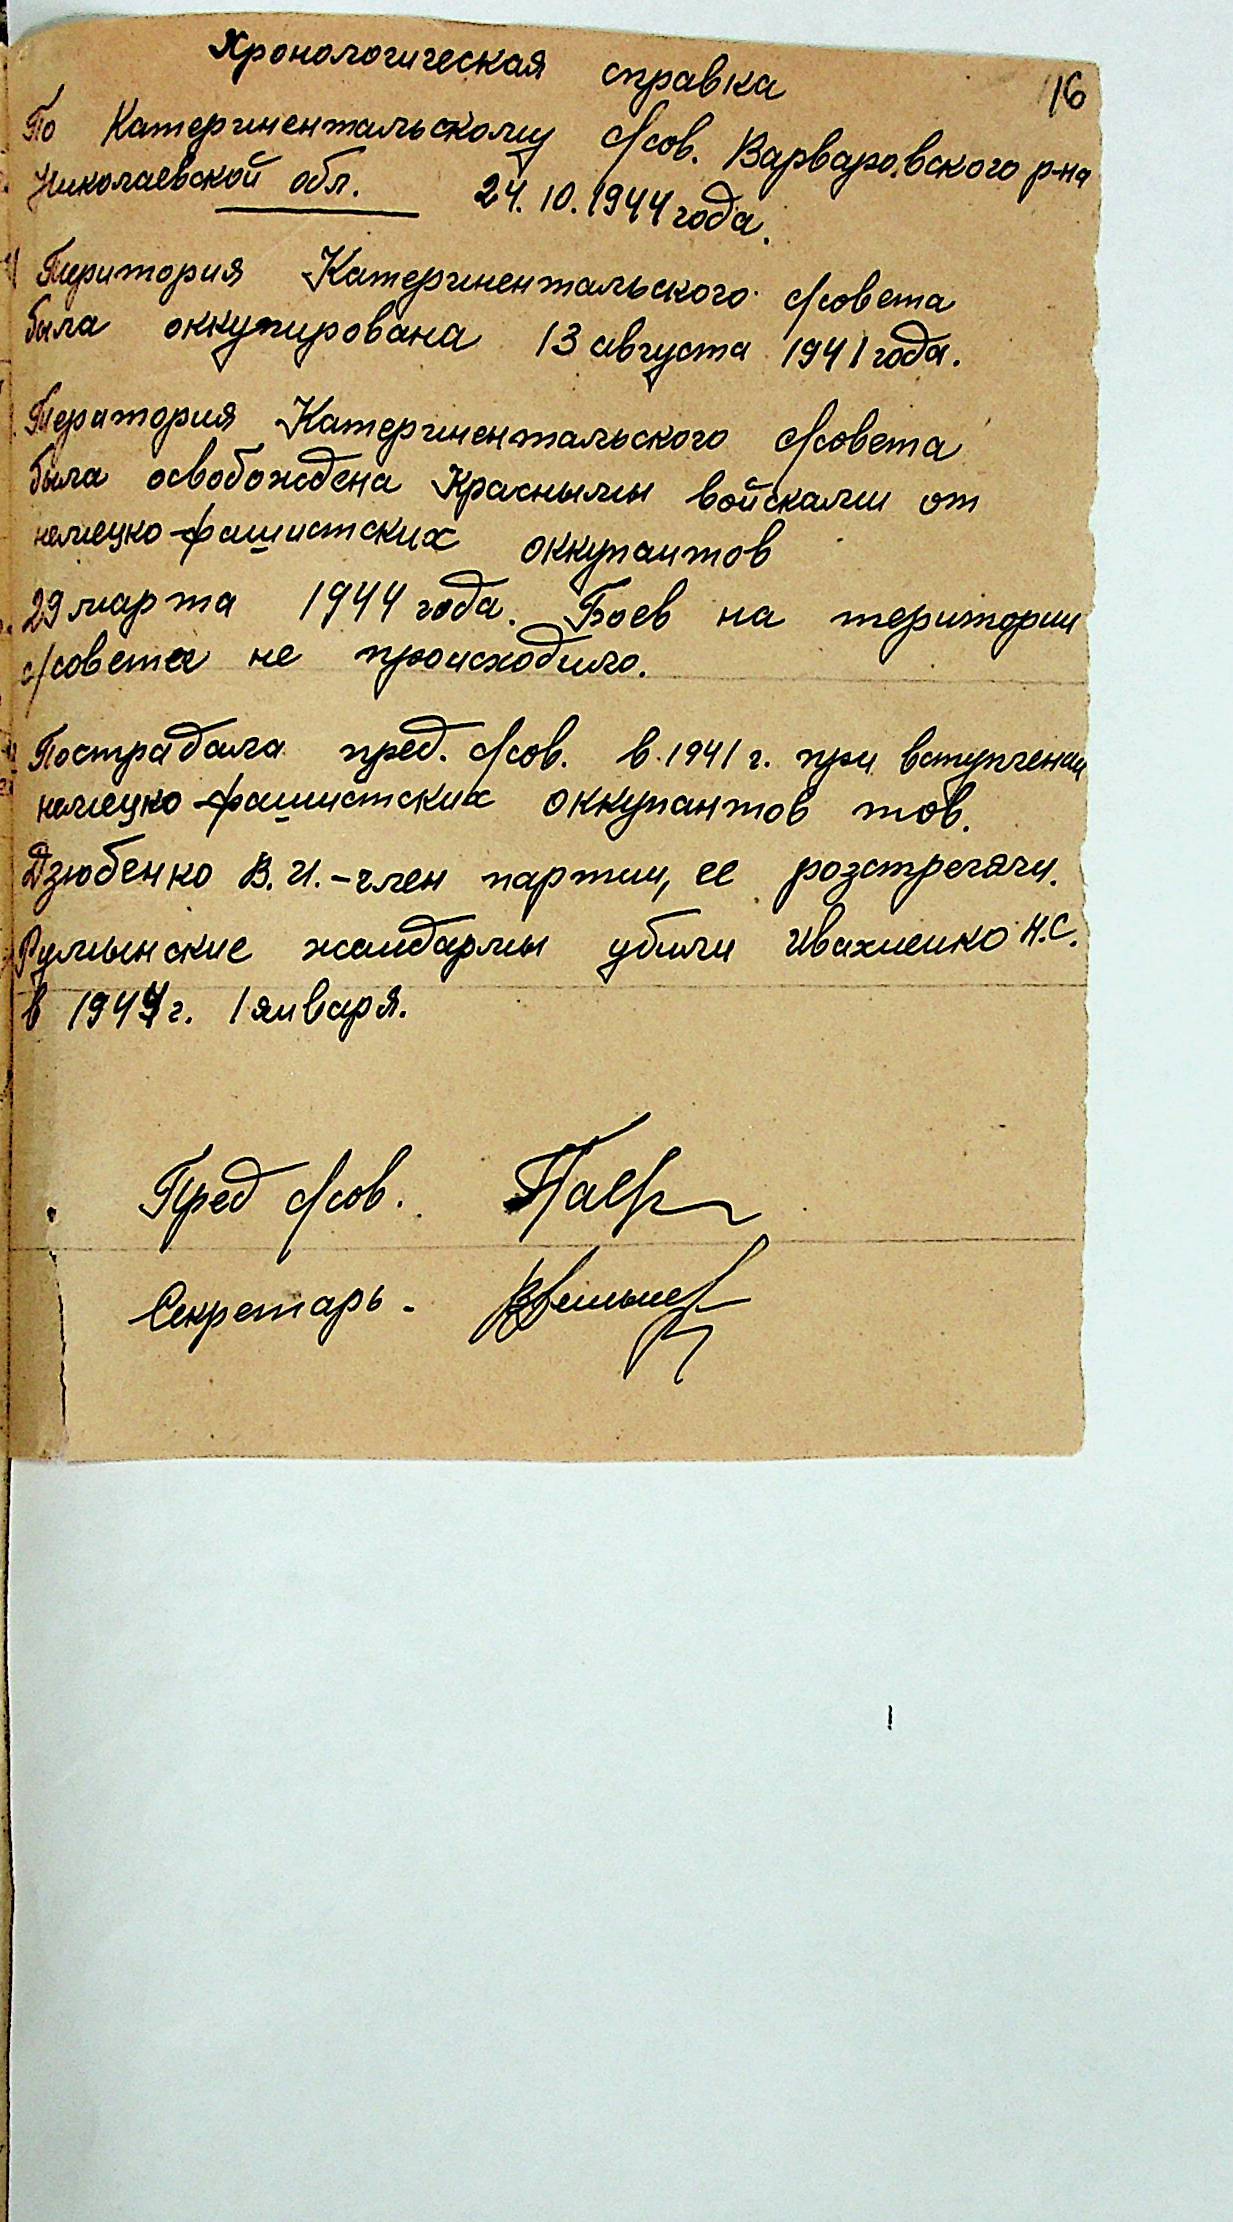 Хронологическая справка
16
По Катериментальскому с/сов. Варваровского р-на
Николаевской обл. 24.10.1944 года.
Територия Катеринентальского с/совета
была оккупирована 13 августа 1941 года.
Територия Катеринентальского с/совета
была освобождена Красными войсками от
немецко-фашистских оккупантов
29 марта 1944 года. Боев на територии
с/совета не происходило.
Пострадала пред. с/сов. в 1941 г. при вступлении
немецко-фашистских оккупантов тов.
Дзюбенко В.И. - член партии, ее розстреляли.
Румынские жандармы убили Ивахненко Н.С.
в 1944 г. 1 января.
Пред с/сов.
Секретарь -